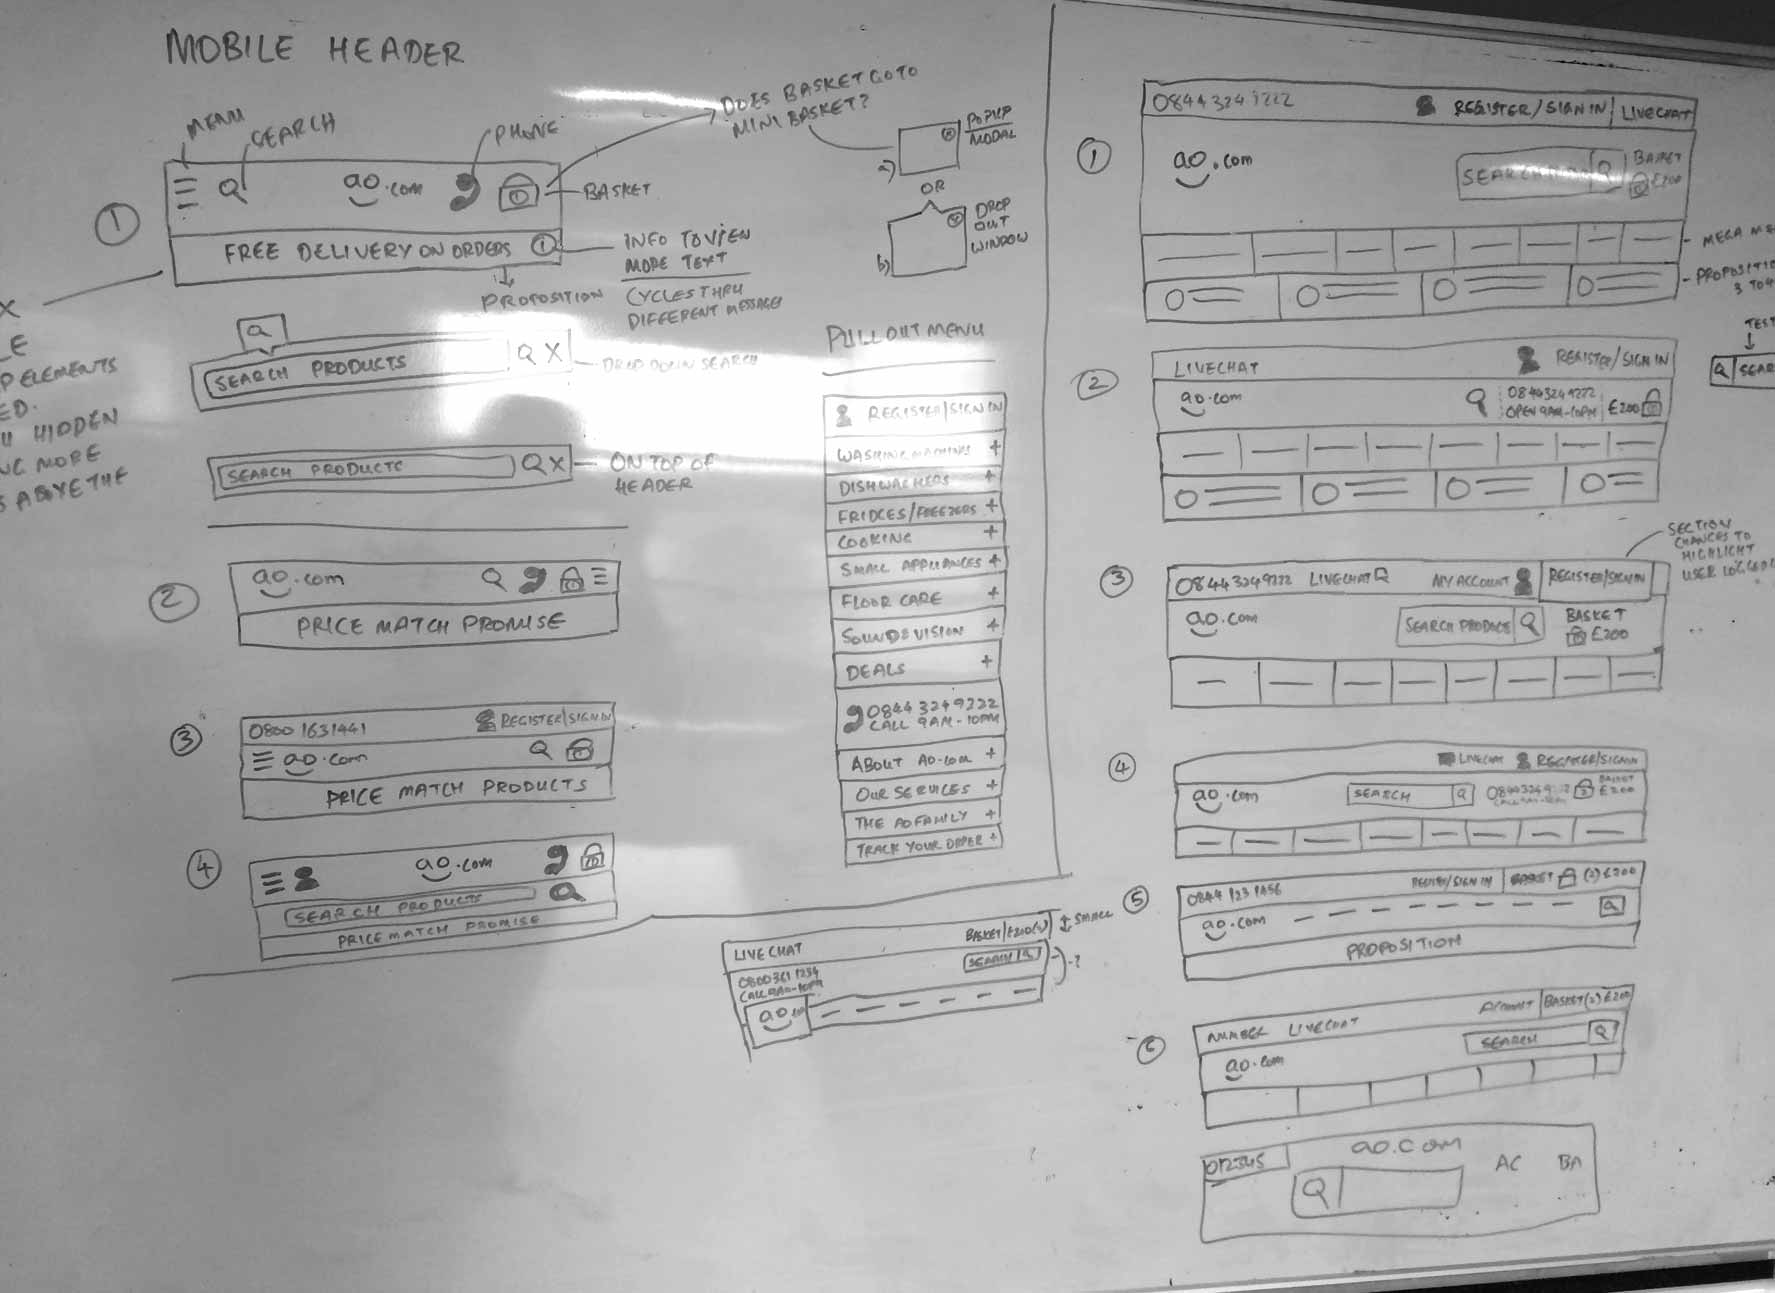 MOBILE HEADER
MENU
SEARCH
PHONE
DOES BASKET GO TO
MINI BASKET?
ao.com
BASKET
1
FREE DELIVERY ON ORDERS i
INFO TO VIEW
MORE TEXT
CYCLES THRU
DIFFERENT MESSAGES
PROPOSITION
a)
POPUP
MODAL
OR
b)
DROP
OUT
WINDOW
ELEMENTS
HIDDEN
MORE
ABOVE THE
SEARCH PRODUCTS X
DROP DOWN SEARCH
SEARCH PRODUCTS X
ON TOP OF
HEADER
2
ao.com
PRICE MATCH PROMISE
3
0800 1631441 REGISTER/SIGN IN
ao.com
PRICE MATCH PRODUCTS
4
ao.com
SEARCH PRODUCTS
PRICE MATCH PROMISE
PULL OUT MENU
REGISTER/SIGN IN
WASHING MACHINES +
DISHWASHERS +
FRIDGES/FREEZERS +
COOKING +
SMALL APPLIANCES +
FLOOR CARE +
SOUND & VISION +
DEALS +
08443249222
CALL 9AM-10PM
ABOUT AO.COM +
OUR SERVICES +
THE AO FAMILY +
TRACK YOUR ORDER +
LIVE CHAT
SMALL
SEARCH
?
CALL 9AM-10PM
ao.com
1
08443249222 REGISTER/SIGN IN LIVECHAT
ao.com
SEARCH
BASKET
£200
MEGA
2
LIVECHAT REGISTER/SIGN IN
ao.com
08443249222
OPEN 9AM-10PM
£200
TEST
3
08443249222 LIVECHAT MY ACCOUNT REGISTER/SIGN IN
SECTION
CHANGES TO
HIGHLIGHT
USER
ao.com
SEARCH PRODUCT
BASKET
£200
4
LIVECHAT REGISTER/SIGN IN
ao.com
SEARCH
BASKET
£200
5
0844 123 1456 REGISTER/SIGN IN BASKET (2) £200
ao.com
PROPOSITION
6
NUMBER LIVECHAT ACCOUNT BASKET(2) £200
ao.com
SEARCH
012345
ao.com
AC BA